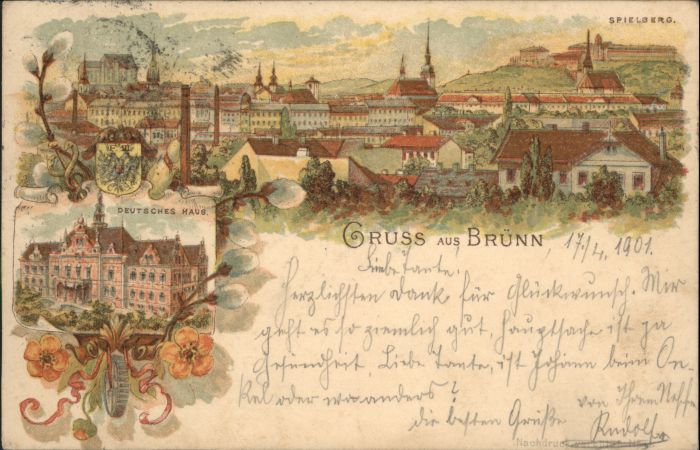 SPIELBERG.
DEUTSCHES HAUS.
GRUSS AUS BRÜNN
17./4. 1901.
Liebe Tante!
Herzlichsten Dank für Glückwunsch. Mir
geht es so ziemlich gut, Hauptsache ist ja
Gesundheit. Liebe Tante, ist Johann beim On-
kel oder wo anders?
von Ihrem Neffen
die besten Grüße
Rudolf
Nachdruck